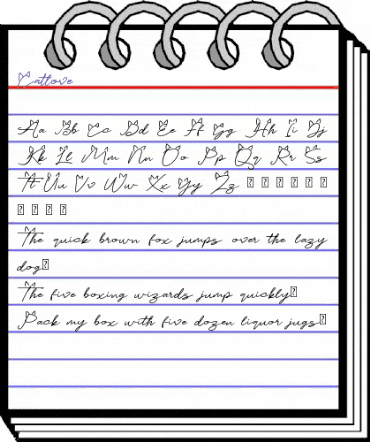 Catlove
Aa Bb Cc Dd Ee Ff Gg Hh Ii Jj
Kk Ll Mm Nn Oo Pp Qq Rr Ss
Tt Uu Vv Ww Xx Yy Zz
The quick brown fox jumps over the lazy
dog
The five boxing wizards jump quickly
Pack my box with five dozen liquor jugs